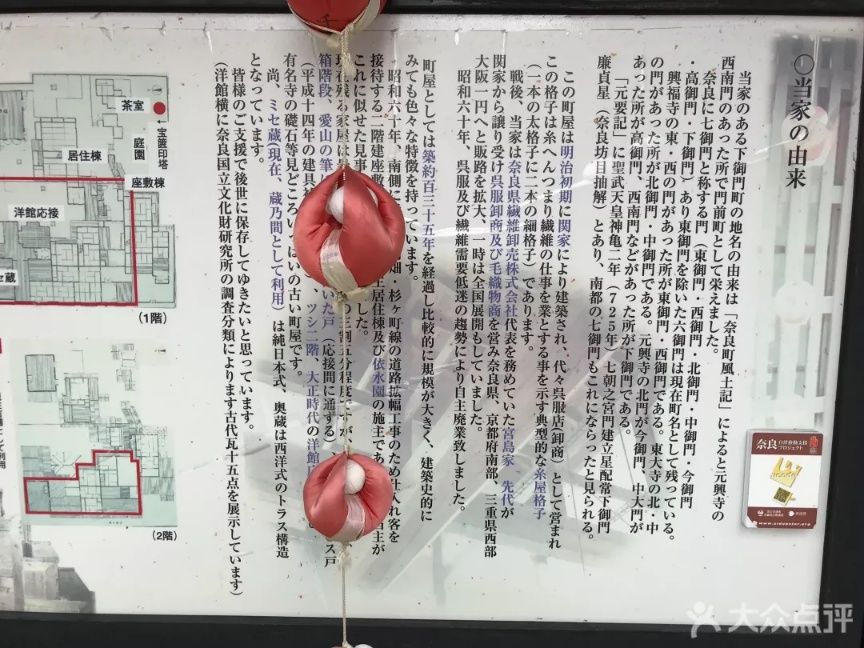 〇当家の由来
当家のある下御門町の地名の由来は「奈良町風土記」によると元興寺の
西南門のあった所で門前町として栄えました。
奈良に七御門と称する門（東御門・西御門・北御門・中御門・今御門
・高御門・下御門）あり東御門を除いた六御門は現在町名として残っている。
興福寺の東・西の門があった所が東御門・西御門である。東大寺の北・中
の門があった所が北御門・中御門である。元興寺の北門が今御門、中大門が
あった所が高御門、西南門などがあった所が下御門である。
「元要記」に聖武天皇神亀二年（７２５年 七朝之宮門建立星配常下御門
廉貞星（奈良坊目抽解）とあり、南都の七御門もこれにならったと見られる。
この町屋は明治初期に関家により建築され、代々呉服店（卸商）として営まれ
この格子は糸へんつまり繊維の仕事を業とする事を示す典型的な糸屋格子
（一本の太格子に二本の細格子）であります。
戦後、当家は奈良県繊維卸売株式会社代表を務めていた宮島家 先代が
関家から譲り受け呉服卸商及び毛織物商を営み奈良県、京都府南部、三重県西部
大阪一円へと販路を拡大、一時は全国展開もしていました。
昭和六十年、呉服及び繊維需要低迷の趨勢により自主廃業致しました。
町屋としては築約百三十五年を経過し比較的に規模が大きく、建築史的に
みても色々な特徴を持っています。
昭和六十年、南側に
畑・杉ヶ町線の道路拡幅工事のため仕入れ客を
接待する二階建座敷
主居住棟及び依水園の施主であ
これに似せた見事
した。
現在残る家屋は
の三割五分程度ですが、
箱階段、愛山の筆
いた戸（応接間に通する）、
（平成十四年の建具
、ツシ二階、大正時代の洋館
有名寺の礎石等見どころいっぱいの古い町屋です。
尚、ミセ蔵（現在、蔵乃間として利用）は純日本式、奥蔵は西洋式のトラス構造
となっています。
皆様のご支援で後世に保存してゆきたいと思っています。
（洋館横に奈良国立文化財研究所の調査分類によります古代瓦十五点を展示しています）
茶室
宝篋印塔
庭園
居住棟
座敷棟
洋館応接
セ蔵
（1階）
（2階）
として利用
奈良
プロジェクト
大众点评